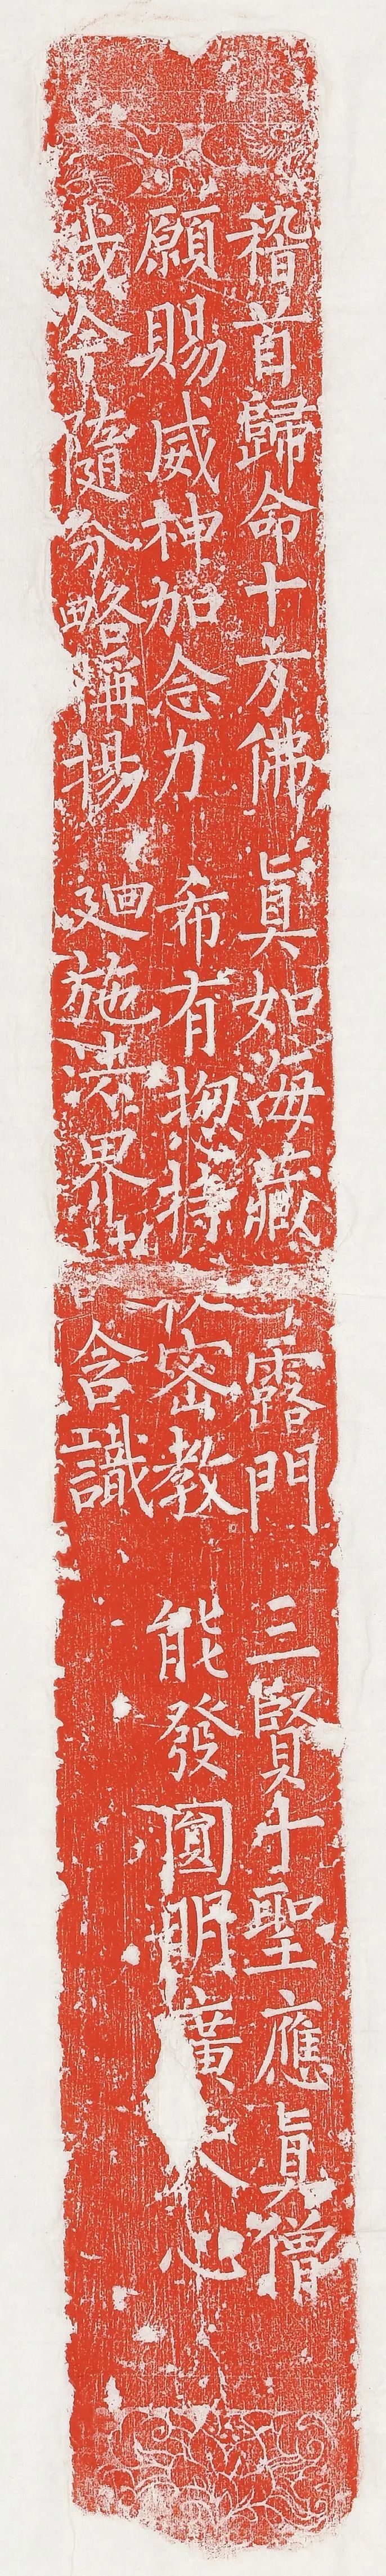 稽首歸命十方佛 真如海藏露門 三賢十聖應真僧
願賜威神加念力 希有捴持密教 能發圓明廣心
我今隨分略稱揚 迴施法界含識